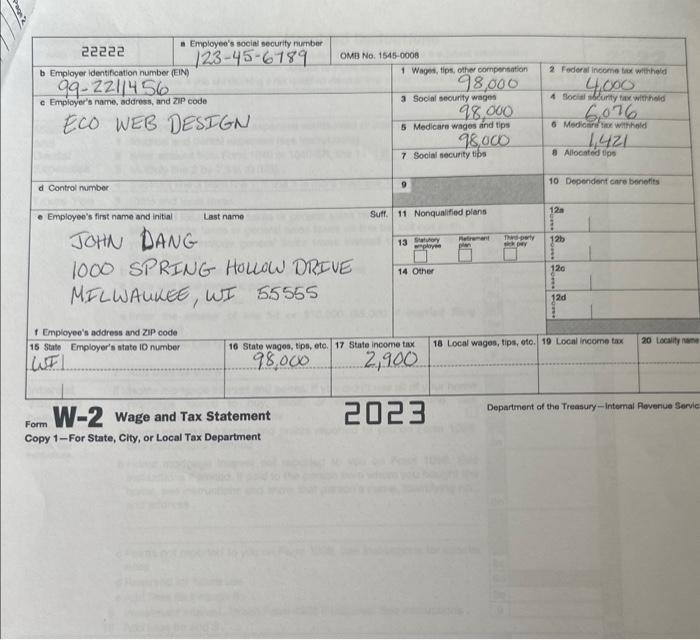 Page 2
22222
a Employee's social security number
123-45-6789
OMB No. 1545-0008
b Employer identification number (EIN)
99-2211456
1 Wages, tips, other compensation
98,000
2 Federal income tax withheld
4,000
c Employer's name, address, and ZIP code
ECO WEB DESIGN
3 Social security wages
98,000
4 Social security tax withheld
6,076
5 Medicare wages and tips
98,000
6 Medicare tax withheld
1,421
7 Social security tips
8 Allocated tips
d Control number
9
10 Dependent care benefits
e Employee's first name and initial Last name Suff.
JOHN DANG
1000 SPRING HOLLOW DRIVE
MILWAUKEE, WI 55555
11 Nonqualified plans
12a
13 Statutory employee Retirement plan Third-party sick pay
12b
14 Other
12c
12d
f Employee's address and ZIP code
15 State Employer's state ID number
WI
16 State wages, tips, etc.
98,000
17 State income tax
2,900
18 Local wages, tips, etc.
19 Local income tax
20 Locality name
Form W-2 Wage and Tax Statement
2023
Department of the Treasury—Internal Revenue Servic
Copy 1—For State, City, or Local Tax Department